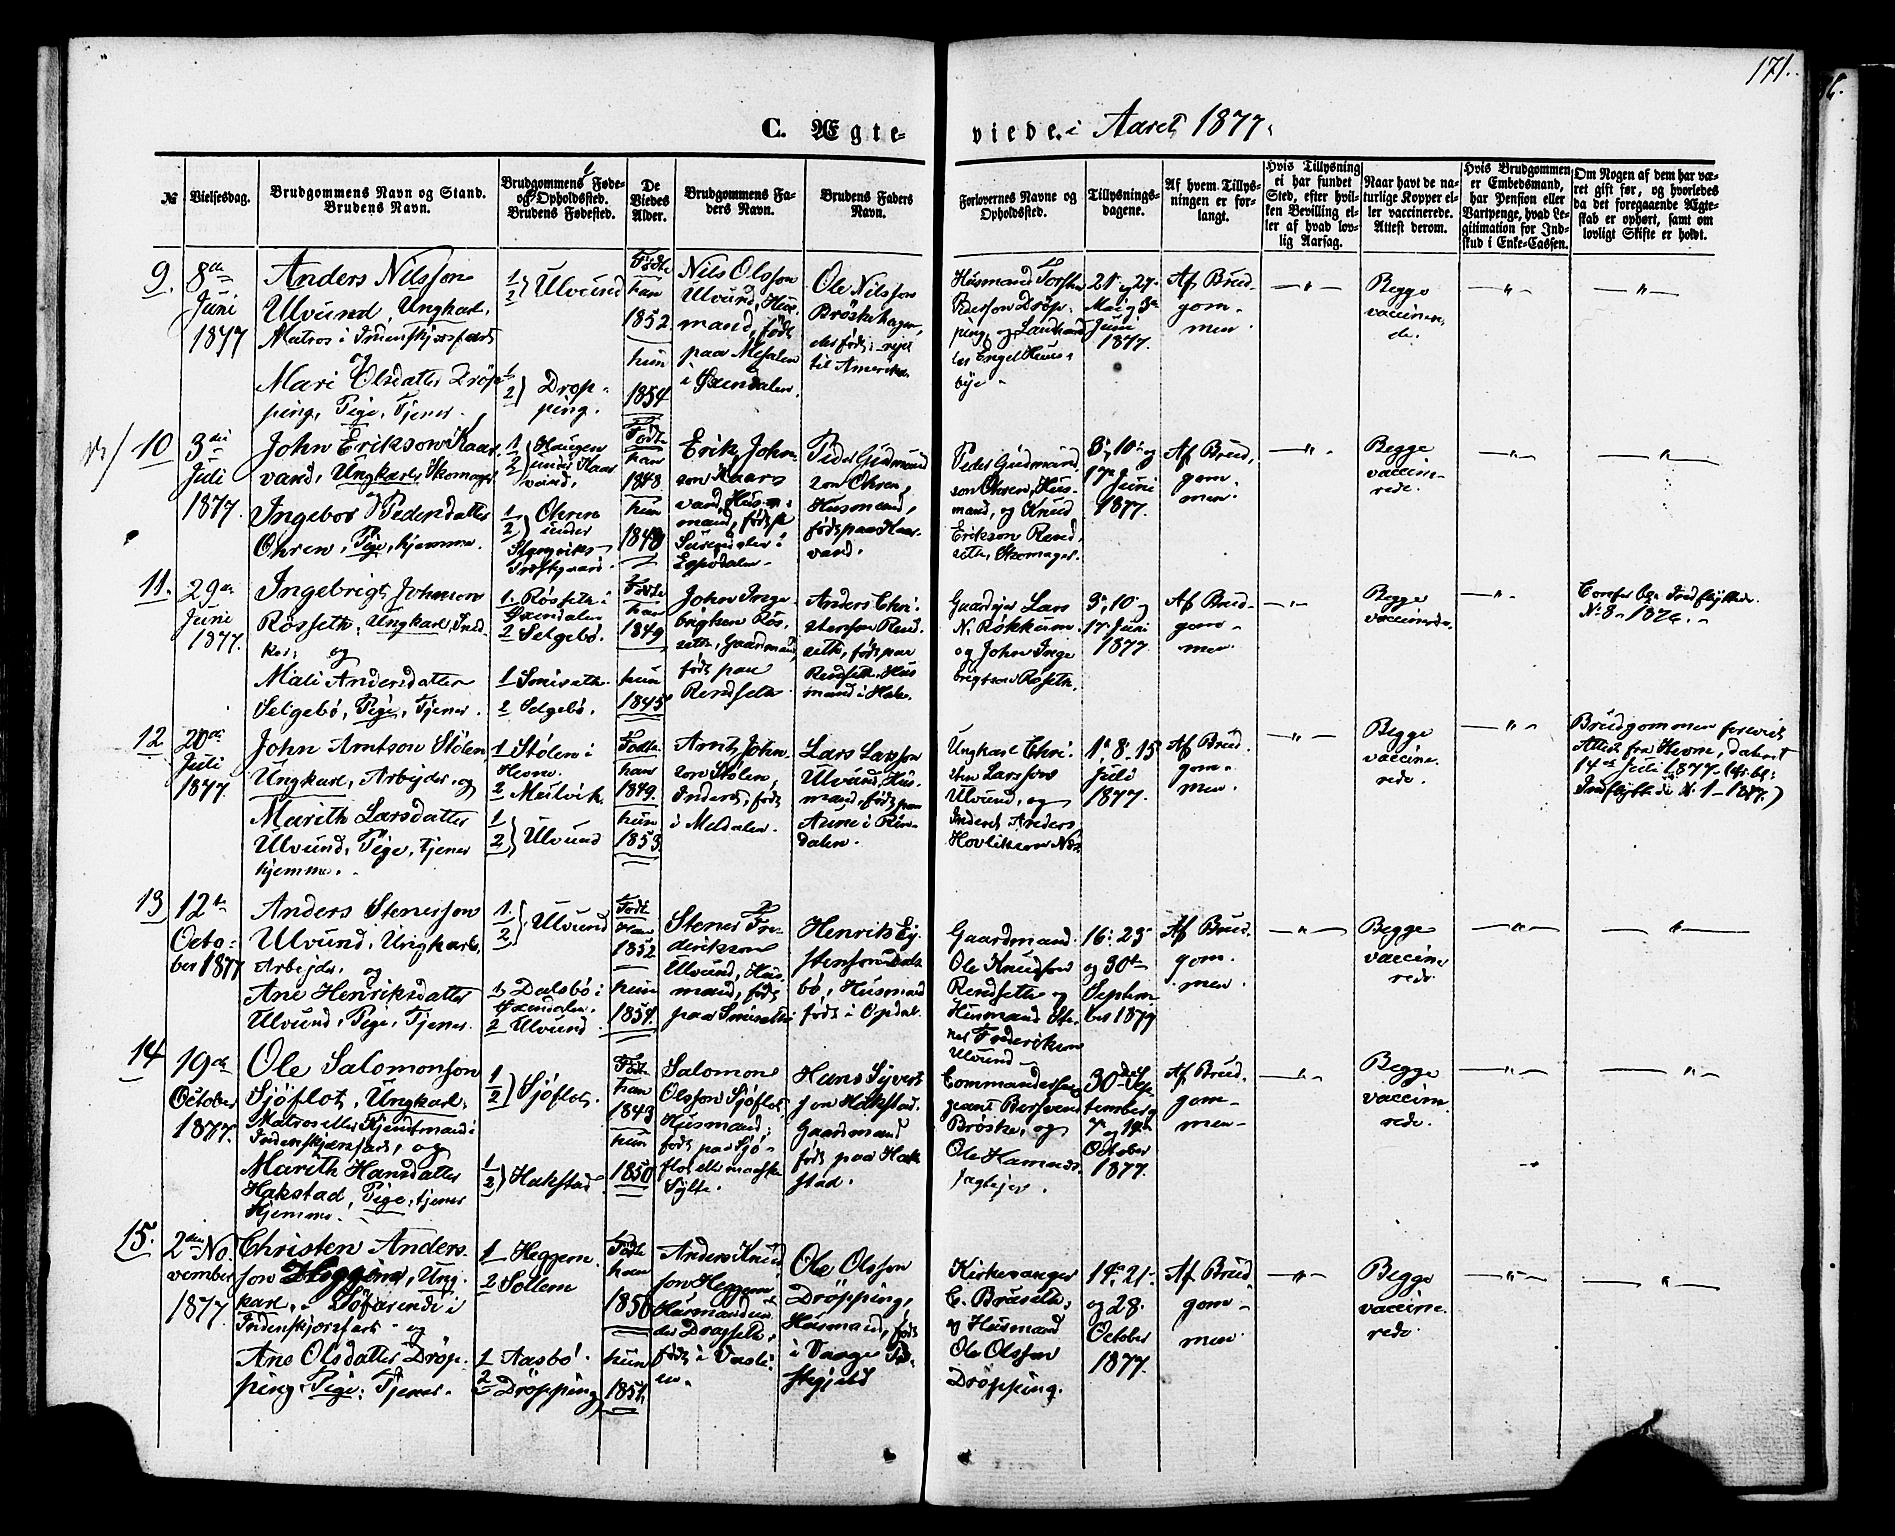 171.
C. Ægte-
viede. i Aaret 1877.
№
Vielsesdag.
Brudgommens Navn og Stand.
Brudens Navn.
Brudgommens Føde-
og Opholdssted.
Brudens Fødested.
De
Viedes
Alder.
Brudgommens Fa-
ders Navn.
Brudens Faders
Navn.
Forlovernes Navne og
Opholdssted.
Tillysnings-
dagene.
Af hvem Tillys-
ningen er for-
langt.
Hvis Tillysning
ei har fundet
Sted, efter hvil-
ken Bevilling el-
ler af hvad lov-
lig Aarsag.
Naar havt de na-
turlige Kopper el-
ler vaccinerede.
Attest derom.
Hvis Brudgommen
er Embedsmand,
har Pension eller
Vartpenge, hvad Le-
gitimation for Ind-
skud i Enke-Cassen.
Om Nogen af dem har væ-
ret gift før, og hvorledes
da det foregaaende Ægte-
skab er ophørt, samt om
lovligt Skifte er holdt.
9.
8de
Juni
1877
Anders Nilsson
Ulvund, Ungkarl,
Matros i Indenskjærsfart
og
Mari Olsdatter Dröp-
ping, Pige, Tjener.
1
2 } Ulvund
1
2 } Dröp-
ping.
Födte
han
1852
hun
1854
Nils Olsson
Ulvund, Hus-
mand, födt
paa
i Øxendalen.
Ole Nilsson
Bröskehagen,
rejst
til Amerika.
Husmand Torsten
Dröp-
ping, og
Huus-
bye.
Mai og 3die
Juni
1877.
Af Brud-
gom-
men
Begge
vaccinere-
de.
10
3die
Juli
1877.
John Erikson Kaar-
vand, Ungkarl, Skomager
og
Ingebor Pedersdatter
Öhren, Pige, hjemme.
1
2 } Haugen
under Kaar-
vand.
1
2 } Öhren
under
Stangviks
Præstgaard.
Födte
han
1848
hun
1849
Erik John-
son Kaar-
vand, Hus-
mand, födt i
Surendalen i
Peder Gudmund-
son Öhren,
Husmand,
födt paa Kaar-
vand.
Peder Gudmund-
son Öhren, Hus-
mand, og Knud
Erikson Rend-
seth, Skomager.
3, 10 og
17de Juni
1877.
Af Brud-
gom-
men.
Begge
vaccine-
rede.
11.
29de
Juni
1877.
Ingebrigt Johnson
Rösseth, Ungkarl, Sned-
ker, og
Mali Andersdatter
Selgebö, Pige, Tjener.
1. Rösseth i
Øxendalen
2 Selgebö.
1 Smiseth.
2 Selgebö.
Födte
han
1849
hun
1845
John Inge-
brigtsen Rös-
seth, Gaardmand,
födt paa
Rendseth.
Anders Chri-
stensson Rend-
seth, födt paa
Rendseth, Hus-
mand i Hals.
Gaardejer Lars
N. Røkkum
og John Inge-
brigtsen Rösseth.
3, 10 og
17 Juni
1877.
Af Brud-
gom-
men.
Begge
vaccinerede.
Confer Indflyttede
No 8 - 1876.
12
20de
Juli
1877.
John Arntson Stölen
Ungkarl, Arbejder, og
Marith Larsdatter
Ulvund, Pige, tjener
hjemme.
1 Stölen i
Hevne.
2 Meilvik.
1
2 } Ulvund
Födte
han
1849.
hun
1853.
Arnt John-
son Stölen,
Inderst, födt
i Meldalen.
Lars Larsson
Ulvund, Hus-
mand, födt paa
Aune i Rin-
dalen.
Ungkarl Chri-
sten Larsson
Ulvund, og
Inderst Anders
1. 8. 15
Juli
1877.
Af Brud-
gom-
men.
Begge
vaccine-
rede.
Brudgommen foreviste
Attest fra Hevne, dateret
14de Juli 1877.
Indflyttede No 1 - 1877.)
13
12te
Octo-
ber 1877
Anders Stenersson
Ulvund, Ungkarl,
Arbejder, og
Ane Henriksdatter
Ulvund, Pige, Tjener.
1.
2 } Ulvund
1. Dalsbö i
Øxendalen.
2 Ulvund
Födte
han
1852
hun
1854.
Stener Fre-
derikson
Ulvund, Hus-
mand, födt
paa Smiseth
Henrik Ey-
stenson Dals-
bö, Husmand
födt i Opdal.
Gaardmand
Ole Knudson
Rendseth og
Husmand Ste-
ner Frederikson
Ulvund
16. 23
og 30te
Septem-
ber 1877
Af Brud-
gom-
men.
Begge
vaccine-
rede.
14
19de
October
1877.
Ole Salomonson
Sjöflot, Ungkarl,
Matros eller Kjendtmand i
Indenskjærsfart, og
Marith Hansdatter
Hakstad, Pige, tjener
hjemme.
1
2 } Sjöflot.
1
2 } Hakstad
Födte
han
1843
hun
1850
Salomon
Olsson Sjöflot,
Husmand,
födt paa Sjö-
flot eller maaske
Sylte.
Hans Syvert-
son Hakstad,
Gaardmand
födt paa Hak-
stad.
Commandeerser-
geant
Bröske, og
Ole
30te Sep-
tember og
7de og 14de
October
1877.
Af Brud-
gom-
men.
Begge
vaccine-
rede.
15.
2den No-
vember
1877.
Christen Anders-
son Heggem, Ung-
karl, Söfarende i
Indenskjærsfart og
Ane Olsdatter Dröp-
ping, Pige, Tjener.
1 Heggem.
2 Sollem
1 Aasbö.
2 Dröpping
Födte
han
1850
hun
Anders Knud-
son Heggem,
Husmand un-
der
födt i
Ole Olsson
Dröpping,
Husmand, födt
i Vaage Præ-
stegjeld
Kirkesanger
E. Bruseth,
og Husmand
Ole Olsson
Dröpping.
14. 21
og 28.
October
1877.
Af Brud-
gom-
men.
Begge
vaccine-
rede.